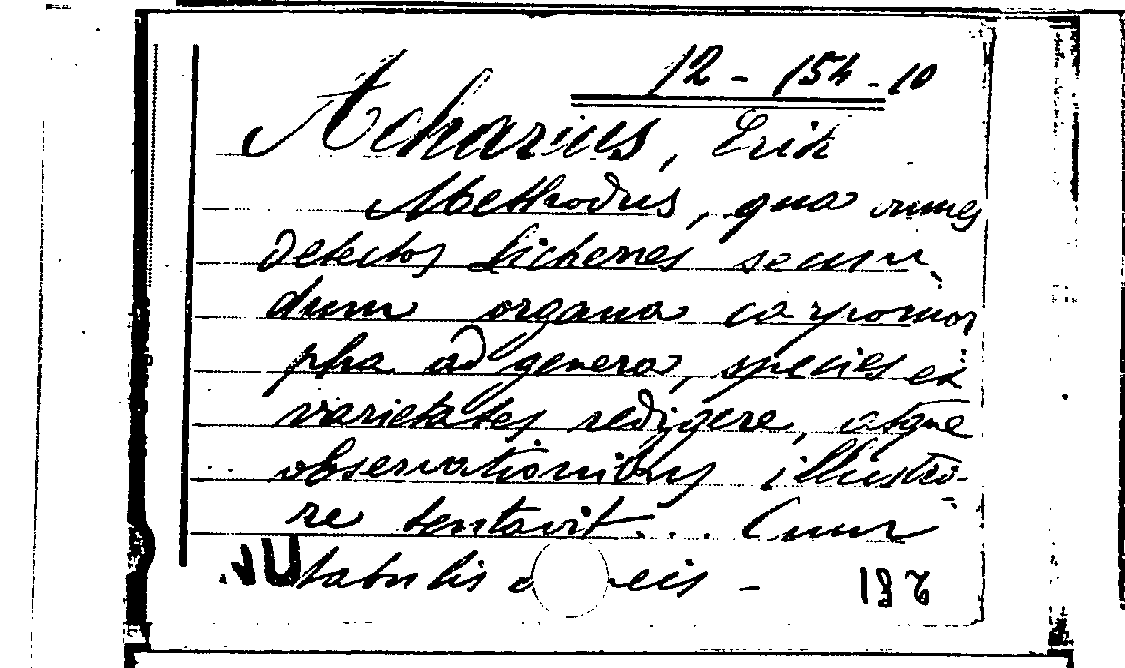 12 - 154 - 10
Acharius, Erik
Methodus, qua omnes
detectos Lichenes secun
dum organa carpomor
pha ad genera, species et
varietates redigere, atque
observationibus illustra-
re tentavit... Cum
tabulis